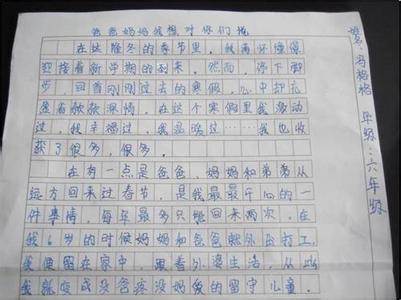 爸爸妈妈我想对你们说
在这隆冬的季节里，我满怀憧憬
迎接着新学期的到来。然而，停下脚
步，回首刚刚过去的寒假，心中却充
满着款款深情。在这个寒假里我激动
过，我幸福过，我品味过……我也收
获了很多，很多。
在有一点是爸爸，妈妈和弟弟从
远方回来过春节，是我最最开心的一
件事情，每年最多只能回来两次。在
我6岁的时候妈妈和爸爸就外出打工，
我便留在家中，跟着外婆生活，从此
我就变成没爸疼没妈爱的留守儿童。
年级：六年级